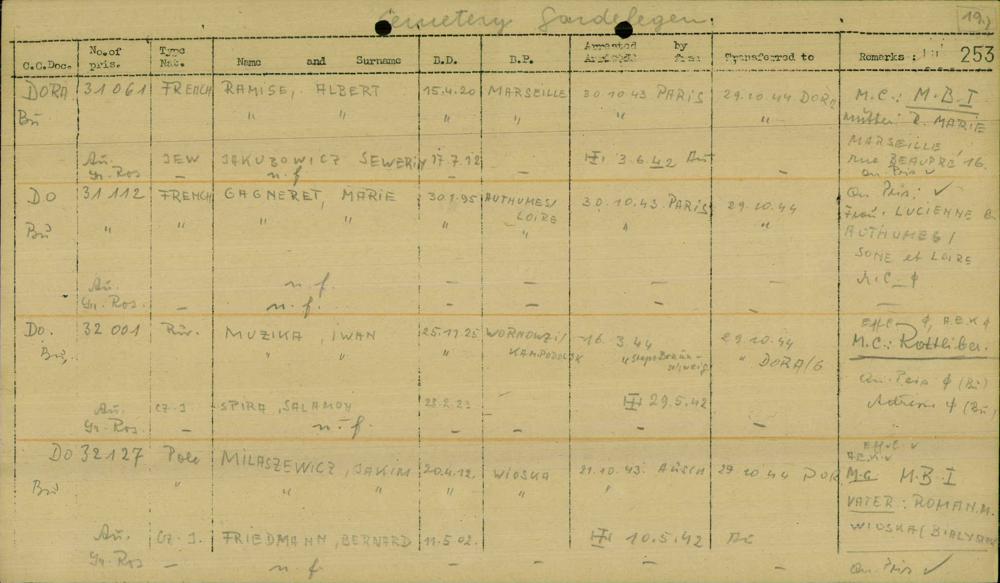 Cemetery Gardelegen
19.)
C.C.Doc. No.of pris. Type Nat. Name and Surname B.D. B.P. Arrested by Transferred to Remarks : 253
DORA 31 061 FRENCH RAMISE, ALBERT 15.4.20 MARSEILLE 30.10.43 PARIS 29.10.44 DORA M.C.: M.B.I
Bu " " " " " " Mutter: R. MARIE
MARSEILLE
Au. JEW JAKUBOWICZ SEWERIN 17.7.12 III 3.6.42 Au rue BEAUPRÉ 16.
Gr.Ros. — n.f. — — — On. Pris ✓
Do 31 112 FRENCH GAGNERET, MARIE 30.1.95 AUTHUMES/ LOIRE 30.10.43. PARIS 29.10.44 On. Pris: ✓
Bu " " " " " " " Frau. LUCIENNE
AUTHUMES/
SONE et LOIRE
Au. n.f. — — — — M.C. ϕ
Gr.Ros. — n.f. — — — — —
Do. 32 001 Rus. MUZIKA, IWAN 25.11.25 16.3.44 29.10.44
Bu. " " " " DORA/6 M.C.:
KAMPODOLSK
On. Pris ϕ (Bu)
Au. Cz.J. SPIRA, SALAMON 28.2.23 — III 29.5.42 Adresse ϕ (Bu)
Gr.Ros. — n.f. — — —
Do 32127 Pole MILASZEWICZ, JAKIM 20.4.12. WIOSKA 21.10.43. 29.10.44 DOR M.C. M.B.I
Bu " " " " VATER: ROMAN.M.
WIOSKA/
Au. Cz.J. FRIEDMANN, BERNARD 11.5.02. III 10.5.42 Au
Gr.Ros — n.f. — — — On. Pris ✓